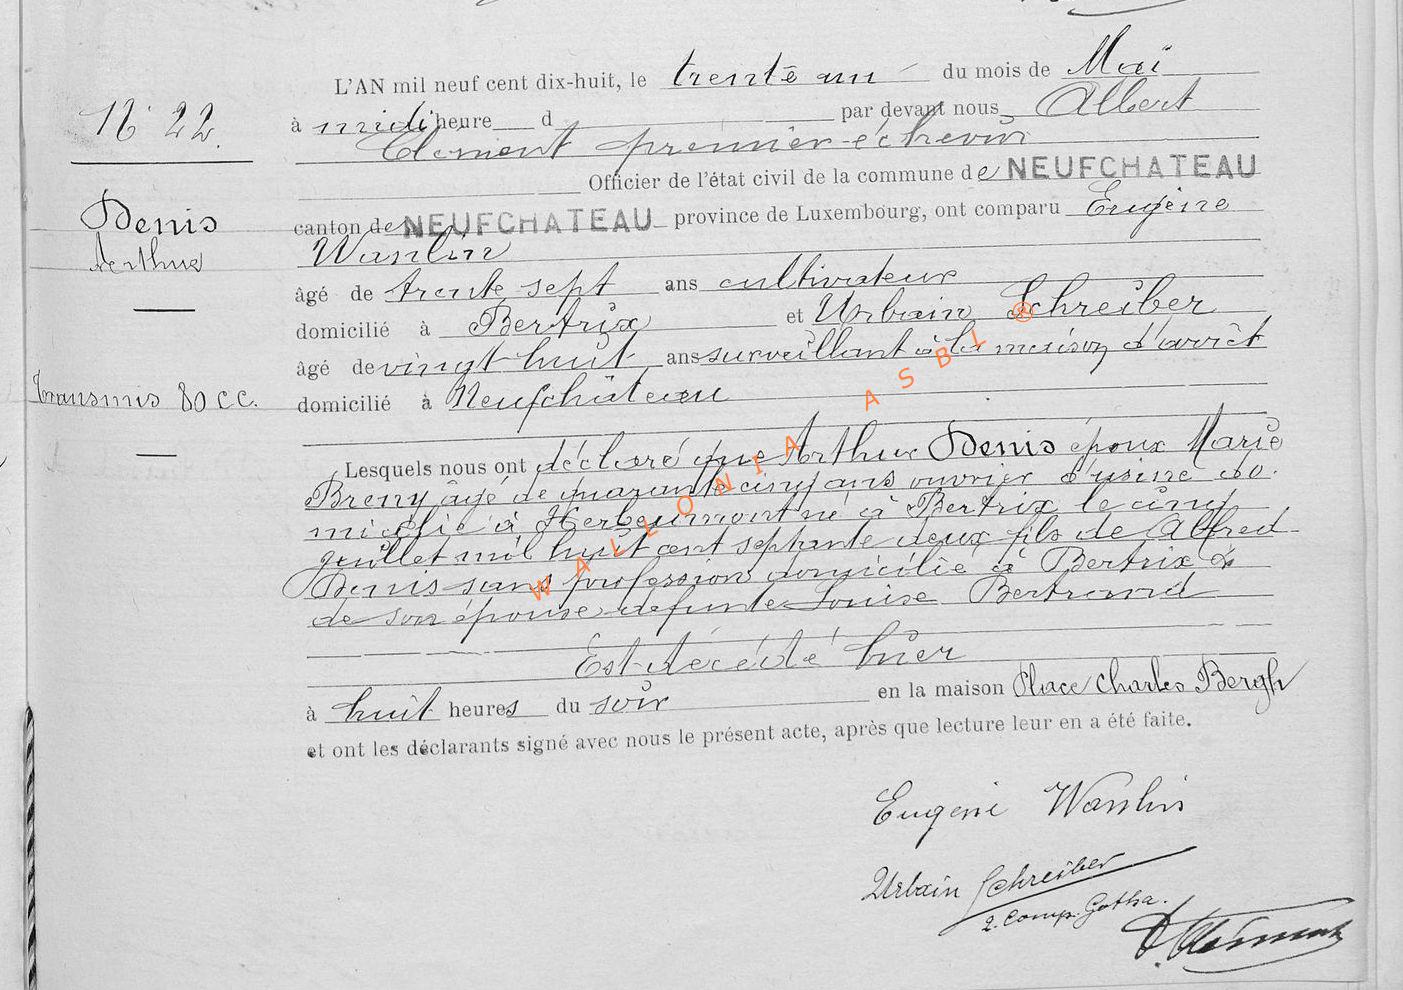 L'AN mil neuf cent dix-huit, le trente un du mois de Mai
N° 22.
à midi heure d par devant nous Albert
Clément premier échevin
Officier de l'état civil de la commune de NEUFCHATEAU
Denis
Arthur
canton de NEUFCHATEAU province de Luxembourg, ont comparu Eugène
Wanlin
âgé de trente sept ans cultivateur
domicilié à Bertrix et Urbain Schreiber
âgé de vingt huit ans surveillant à la maison d'arrêt
Transmis 80 CC.
domicilié à Neufchâteau
Lesquels nous ont déclaré que Arthur Denis époux Marie
Breny âgé de quarante cinq ans ouvrier d'usine do
micilié à Herbeumont né à Bertrix le cinq
juillet mil huit cent septante deux fils de Alfred
Denis sans profession domicilié à Bertrix &
de son épouse défunte Louise Bertrand
Est décédé hier
à huit heures du soir en la maison Place Charles Bergh
et ont les déclarants signé avec nous le présent acte, après que lecture leur en a été faite.
Eugène Wanlin
Urbain Schreiber
2. Comp. Gotha.
Clément
WALLONIA ASBL @